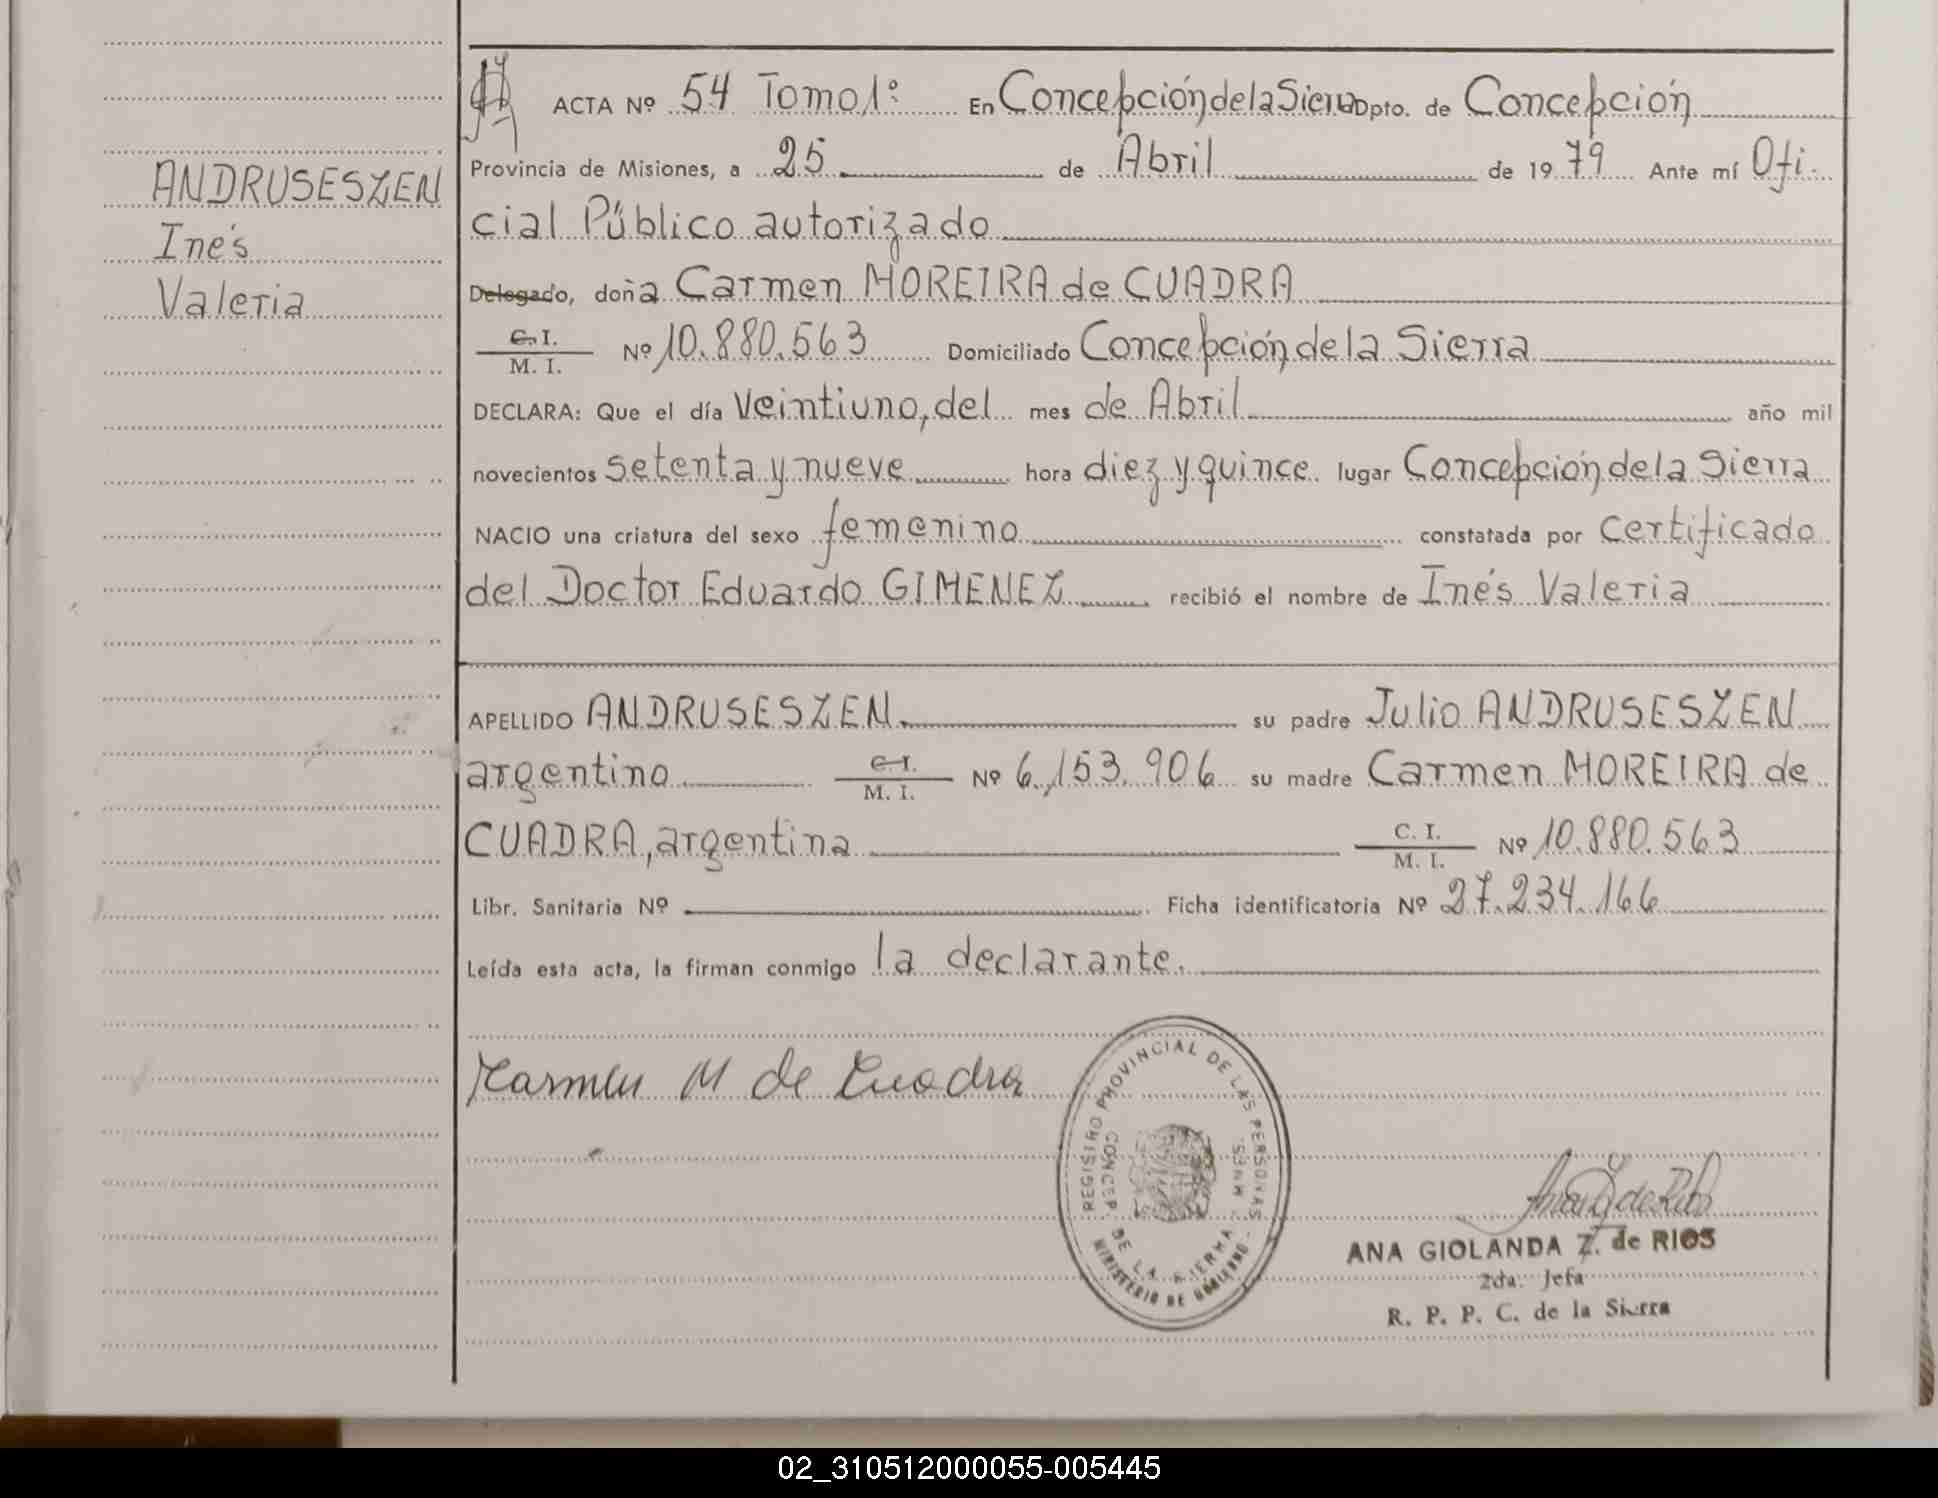 ACTA Nº 54 Tomo 1º En Concepción de la Sierra Dpto. de Concepción
Provincia de Misiones, a 25 de Abril de 1979 Ante mí Ofi-
cial Público autorizado
Delegado, doña Carmen MOREIRA de CUADRA
C. I.
M. I.
Nº 10.880.563 Domiciliado Concepción de la Sierra
DECLARA: Que el día Veintiuno, del mes de Abril año mil
novecientos setenta y nueve hora diez y quince lugar Concepción de la Sierra
NACIO una criatura del sexo femenino constatada por Certificado
del Doctor Eduardo GIMENEZ recibió el nombre de Inés Valeria
ANDRUSESZEN
Inés
Valeria
APELLIDO ANDRUSESZEN su padre Julio ANDRUSESZEN
argentino C. I. M. I. Nº 6.153.906 su madre Carmen MOREIRA de
CUADRA, argentina C. I. M. I. Nº 10.880.563
Libr. Sanitaria Nº Ficha identificatoria Nº 27.234.166
Leída esta acta, la firman conmigo la declarante.
Karmen M de Cuadra
REGISTRO PROVINCIAL DE LAS PERSONAS
CONCEP. DE LA SIERRA - MNES.
MINISTERIO DE GOBIERNO -
ANA GIOLANDA Z. de RIOS
2da. Jefa
R. P. P. C. de la Sierra
02_310512000055-005445